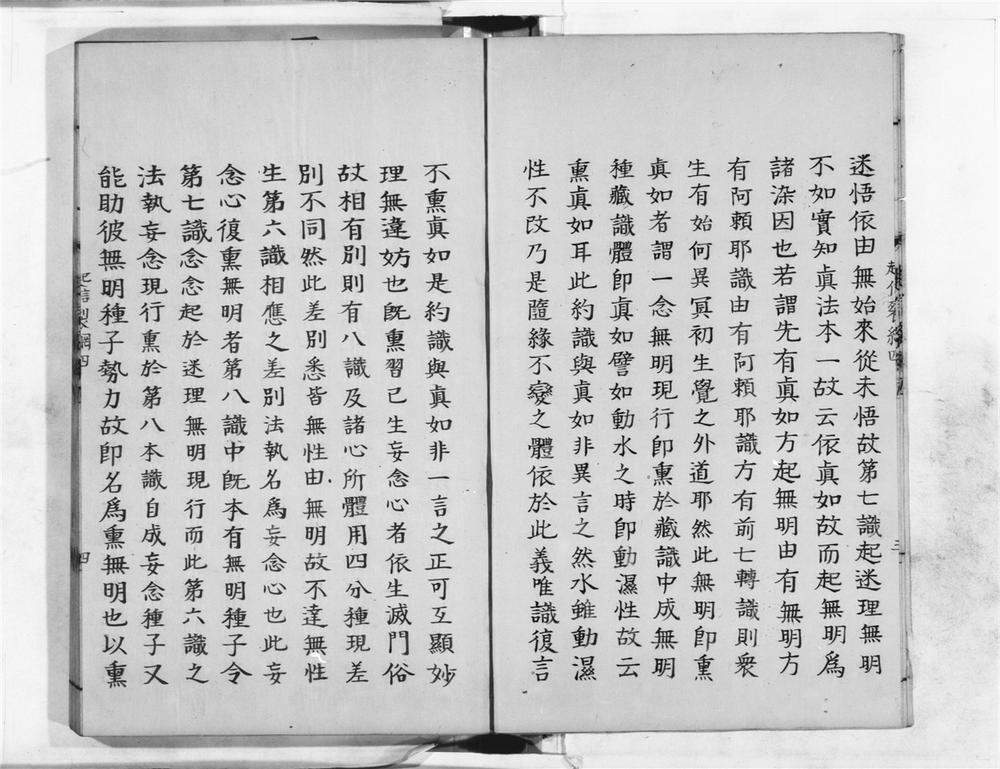 迷悟依由無始來從未悟故第七識起迷理無明
不如實知真法本一故云依真如故而起無明為
諸染因也若謂先有真如方起無明由有無明方
有阿賴耶識由有阿賴耶識方有前七轉識則衆
生有始何異冥初生覺之外道耶然此無明即熏
真如者謂一念無明現行即熏於藏識中成無明
種藏識體即真如譬如動水之時即動濕性故云
熏真如耳此約識與真如非異言之然水雖動濕
性不改乃是隨緣不變之體依於此義唯識復言
不熏真如是約識與真如非一言之正可互顯妙
理無違妨也既熏習已生妄念心者依生滅門俗
故相有別則有八識及諸心所體用四分種現差
別不同然此差別悉皆無性由無明故不達無性
生第六識相應之差別法執名爲妄念心也此妄
念心復熏無明者第八識中既本有無明種子令
第七識念念起於迷理無明現行而此第六識之
法執妄念現行熏於第八本識自成妄念種子又
能助彼無明種子勢力故即名爲熏無明也以熏
起信裂網四
四